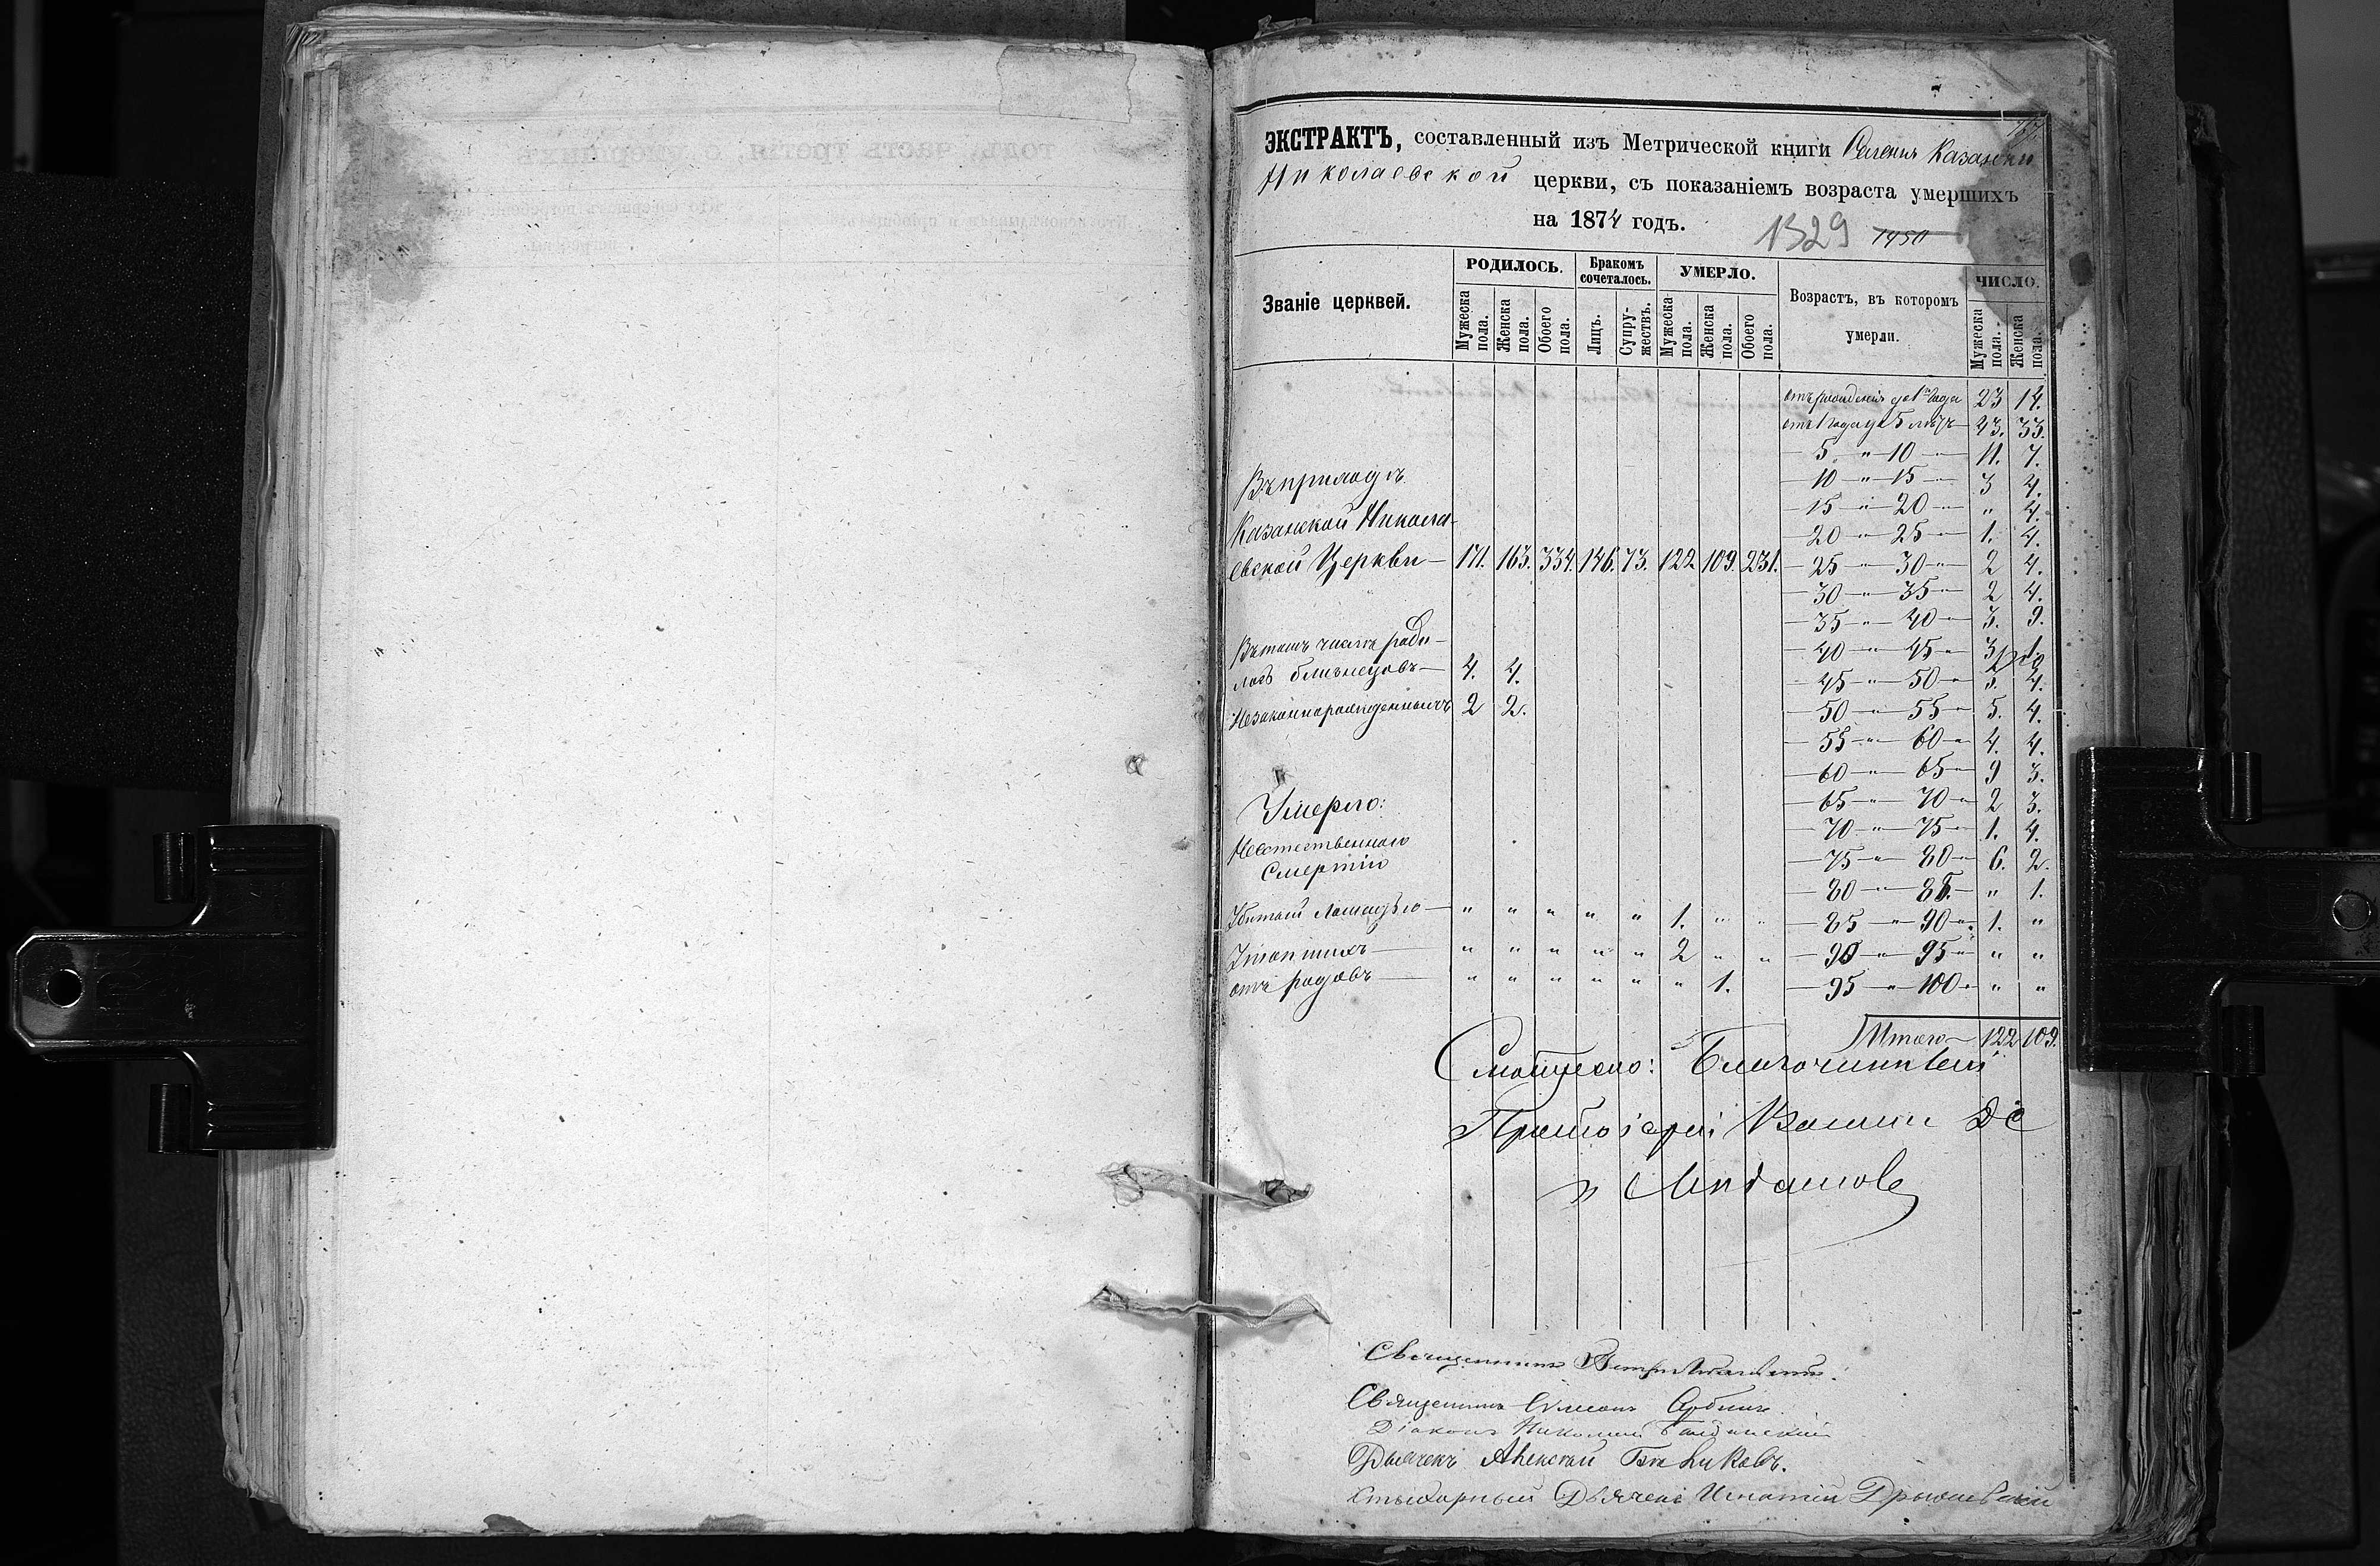 ЭКСТРАКТЪ, составленный изъ Метрической книги Селенія Казанки
Николаевской церкви, съ показаніемъ возраста умершихъ
на 1874 годъ.
1329 1450
Званіе церквей.
РОДИЛОСЬ.
Мужеска пола.
Женска пола.
Обоего пола.
Бракомъ сочеталось.
Лицъ.
Супружествъ.
УМЕРЛО.
Мужеска пола.
Женска пола.
Обоего пола.
Возрастъ, въ которомъ умерли.
ЧИСЛО.
Мужеска пола.
Женска пола.
отъ рожденія до 1го года 23 14.
отъ 1 года до 5 лѣтъ 43. 33.
5 " 10 " 11. 7.
10 " 15 " 3 4.
15 " 20 " " 4.
20 " 25 " 1. 4.
25 " 30 " 2 4.
30 " 35 " 2 4.
35 " 40 " 3. 9.
40 " 45 " 3 1.
45 " 50 " 3. 4.
50 " 55 " 5. 4.
55 " 60 " 4. 4.
60 " 65 " 9 3.
65 " 70 " 2 3.
70 " 75 " 1. 4.
75 " 80 " 6. 2.
80 " 85 " " 1.
85 " 90 " 1. "
90 " 95 " " "
95 " 100 " " "
Итого 122 109.
Въ приходѣ
Казанской Никола-
евской Церкви — 171. 163. 334. 146. 73. 122 109. 231.
Въ томъ числѣ роди-
лось близнецовъ — 4. 4.
Незаконнорожденныхъ 2 2.
Умерло:
Неестественною
Смертію
Убитый Лошадью — " " " " " 1. " "
Утопшихъ — " " " " " 2 " "
отъ родовъ — " " " " " " 1.
Благочинный
Протоіерей
Священникъ Петръ
Священникъ Симеонъ
Діаконъ Николай
Дьячекъ Алексѣй
Дьячекъ Игнатій